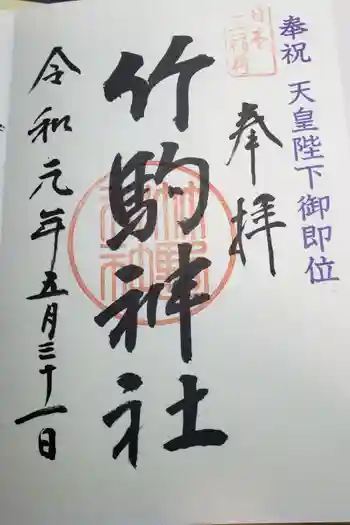 奉祝 天皇陛下御即位
日本三稲荷
奉拝
竹駒神社
令和元年五月三十一日